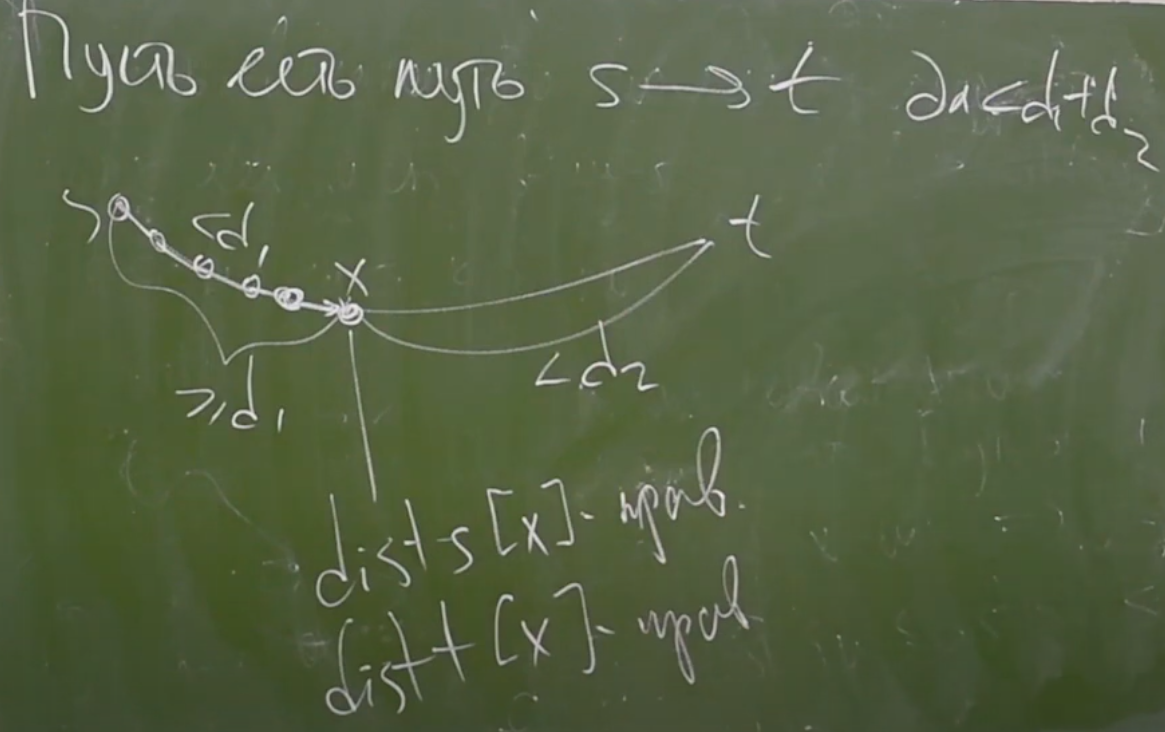 Пусть есть путь s → t дл < d₁ + d₂
s
< d₁
x
t
≥ d₁
< d₂
dist s [x] - прав.
dist t [x] - прав